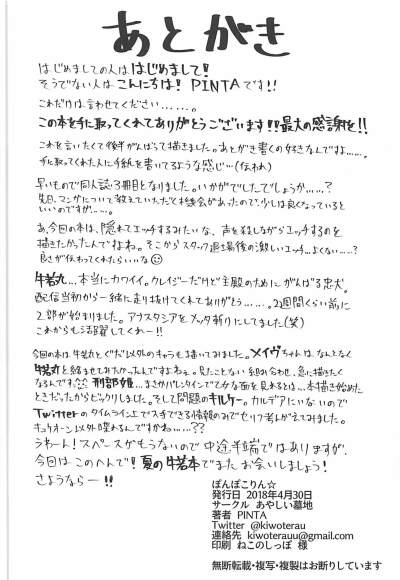 あとがき
はじめましての人ははじめまして!
そうでない人はこんにちは! PINTAです!!
これだけは言わせてください......。
この本を手に取ってくれてありがとうございます!!最大の感謝を!!
これを言いたくて後半がんばって描きました。あとがき書くの好きなんですよ......。
手に取ってくれた人に手紙を書いてるような感じ...(伝われ)
早いもので同人誌3冊目となりました。いかがでしたでしょうか......?
先日、マンガについて教えていただく機会があったので、少しは良くなっていると
いいのですが......。
あ、今回の本は、隠れてエッチするみたいな、声を殺しながらエッチするのを
描きたかったんですよね。そこからスタッフ退場最後の激しいエッチ...よくない......?
良さが伝わってくれたらいいな
牛若丸...本当にカワイイ。クレイジーだけど主殿のためにがんばる忠犬。
配信当初から一緒に走り抜けてくれてありがとう......。2週間くらい前に
2部が始まりました。アナスタシアをメッタ斬りにしてました(笑)
これからも活躍してくれー!!
今回の本は牛若丸とぐだ以外のキャラも描いてみました。メイヴちゃんは、なんとなく
牛若丸と絡ませてみたかったんですよねぇ。見たことない組み合わせ、急に描きたく
なるんです。刑部姫...まさかバレンタインでひかな面を見れるとは...本描き始めた
ときだったからビックリしました。そして問題のキルケー。カルデアにいないので
Twitterのタイムライン上で入手できる情報のみでセリフ考えてみました。
キュケオーン以外喋れるんですかね......??
うわーん! スペースがもうないので中途半端ではありますが、
今回はこのへんで! 夏の牛若本でまたお会いしましょう!
さようならー!!
ぽんぽこりん☆
発行日 2018年4月30日
サークル あやしい墓地
著者 PINTA
Twitter @kiwoterau
連絡先 kiwoterauu@gmail.com
印刷 ねこのしっぽ 様
無断転載・複写・複製はお断りしています